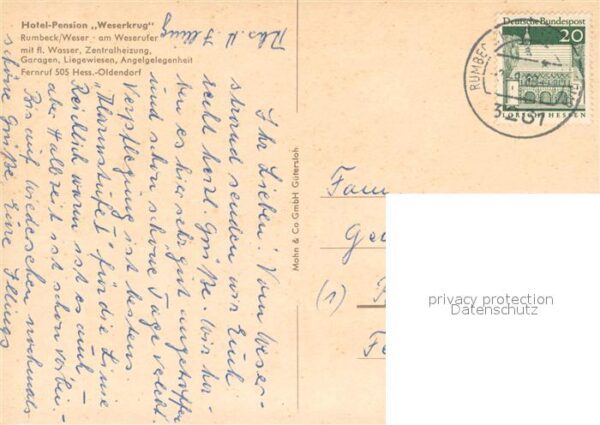 Hotel-Pension „Weserkrug"
Rumbeck/Weser · am Weserufer
mit fl. Wasser, Zentralheizung,
Garagen, Liegewiesen, Angelgelegenheit
Fernruf 505 Hess.-Oldendorf
Ihr Lieben! Vom Weser-
strand senden wir Euch
recht herzl. Grüße. Wir ha-
ben es hier sehr gut angetroffen
und schon schöne Tage verlebt.
Verpflegung ist bestens.
„Alarmstufe 1" für die Linie
Reichlich warm ist es auch –
aber Halbzeit ist schon vorbei –
Bis auf Wiedersehen nochmals
schöne Grüße, Eure Illings
Abs. Illing
Mohn & Co GmbH Gütersloh
Deutsche Bundespost
20
LORSCH/HESSEN
RUMBEC
3251
Fam
Ge
(1)
Fe
privacy protection
Datenschutz